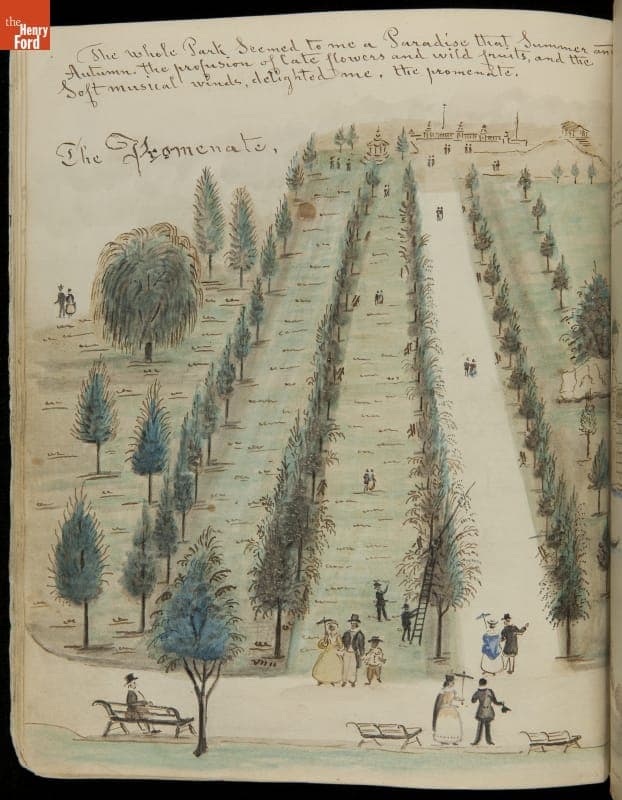 the
Henry
Ford
The whole Park Seemed to me a Paradise that Summer an
Autumn. the profusion of late flowers and wild fruits, and the
Soft musical winds, delighted me, the promenate.
The Promenate,